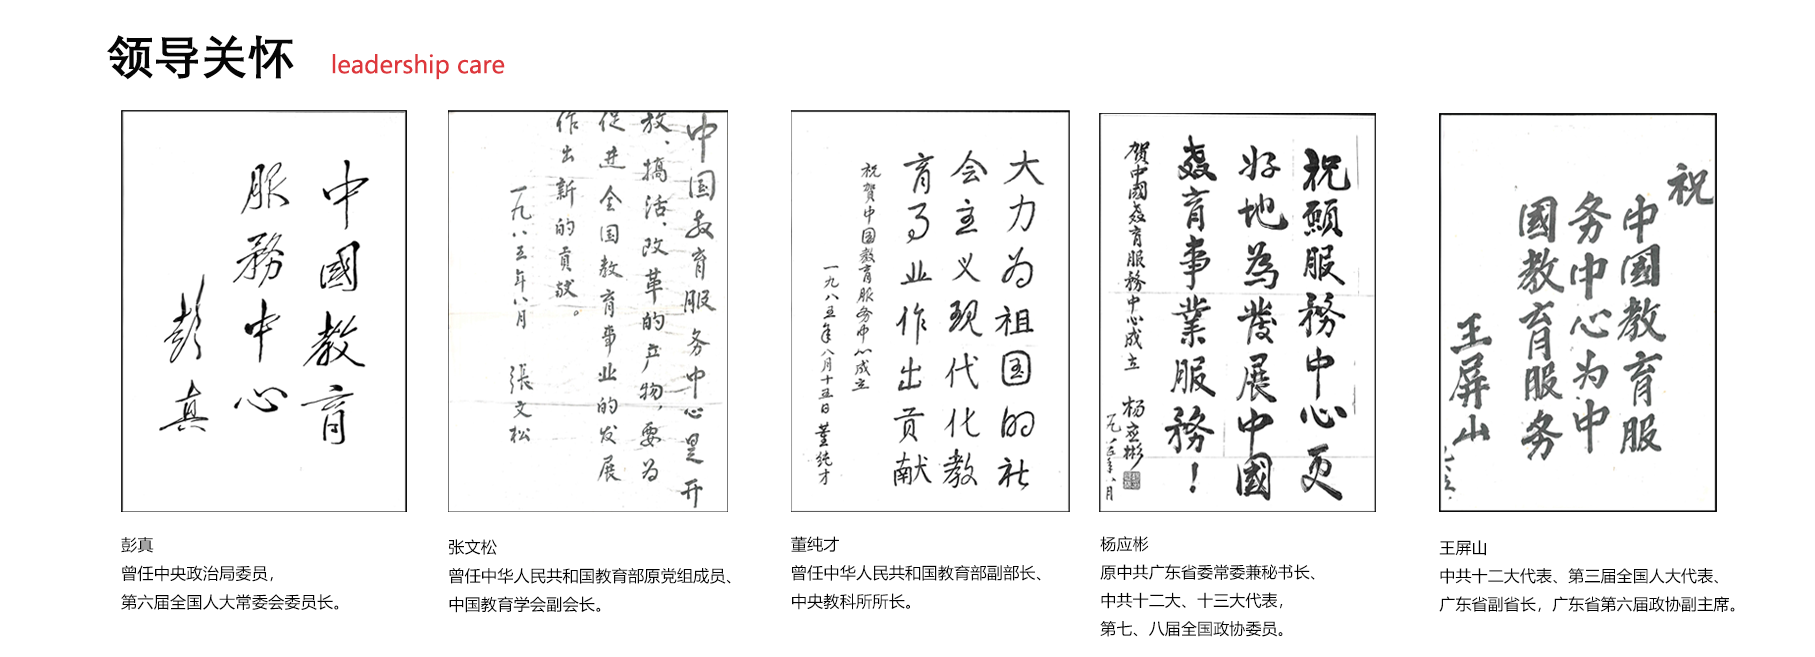 领导关怀
leadership care
中國教育
服務中心
彭真
中国教育服务中心是开
放、搞活、改革的产物,要为
促进全国教育事业的发展
作出新的贡献。
一九八五年八月 張文松
大力为祖国的社
会主义现代化教
育事业作出贡献
祝賀中国教育服务中心成立
一九八五年八月十五日 董纯才
祝願服務中心更
好地為發展中國
教育事業服務!
賀中國教育服務中心成立
杨应彬
一九八五年八月
祝
中国教育服
务中心为中
國教育服务
王屏山
彭真
曾任中央政治局委员,
第六届全国人大常委会委员长。
张文松
曾任中华人民共和国教育部原党组成员、
中国教育学会副会长。
董纯才
曾任中华人民共和国教育部副部长、
中央教科所所长。
杨应彬
原中共广东省委常委兼秘书长、
中共十二大、十三大代表,
第七、八届全国政协委员。
王屏山
中共十二大代表、第三届全国人大代表、
广东省副省长,广东省第六届政协副主席。